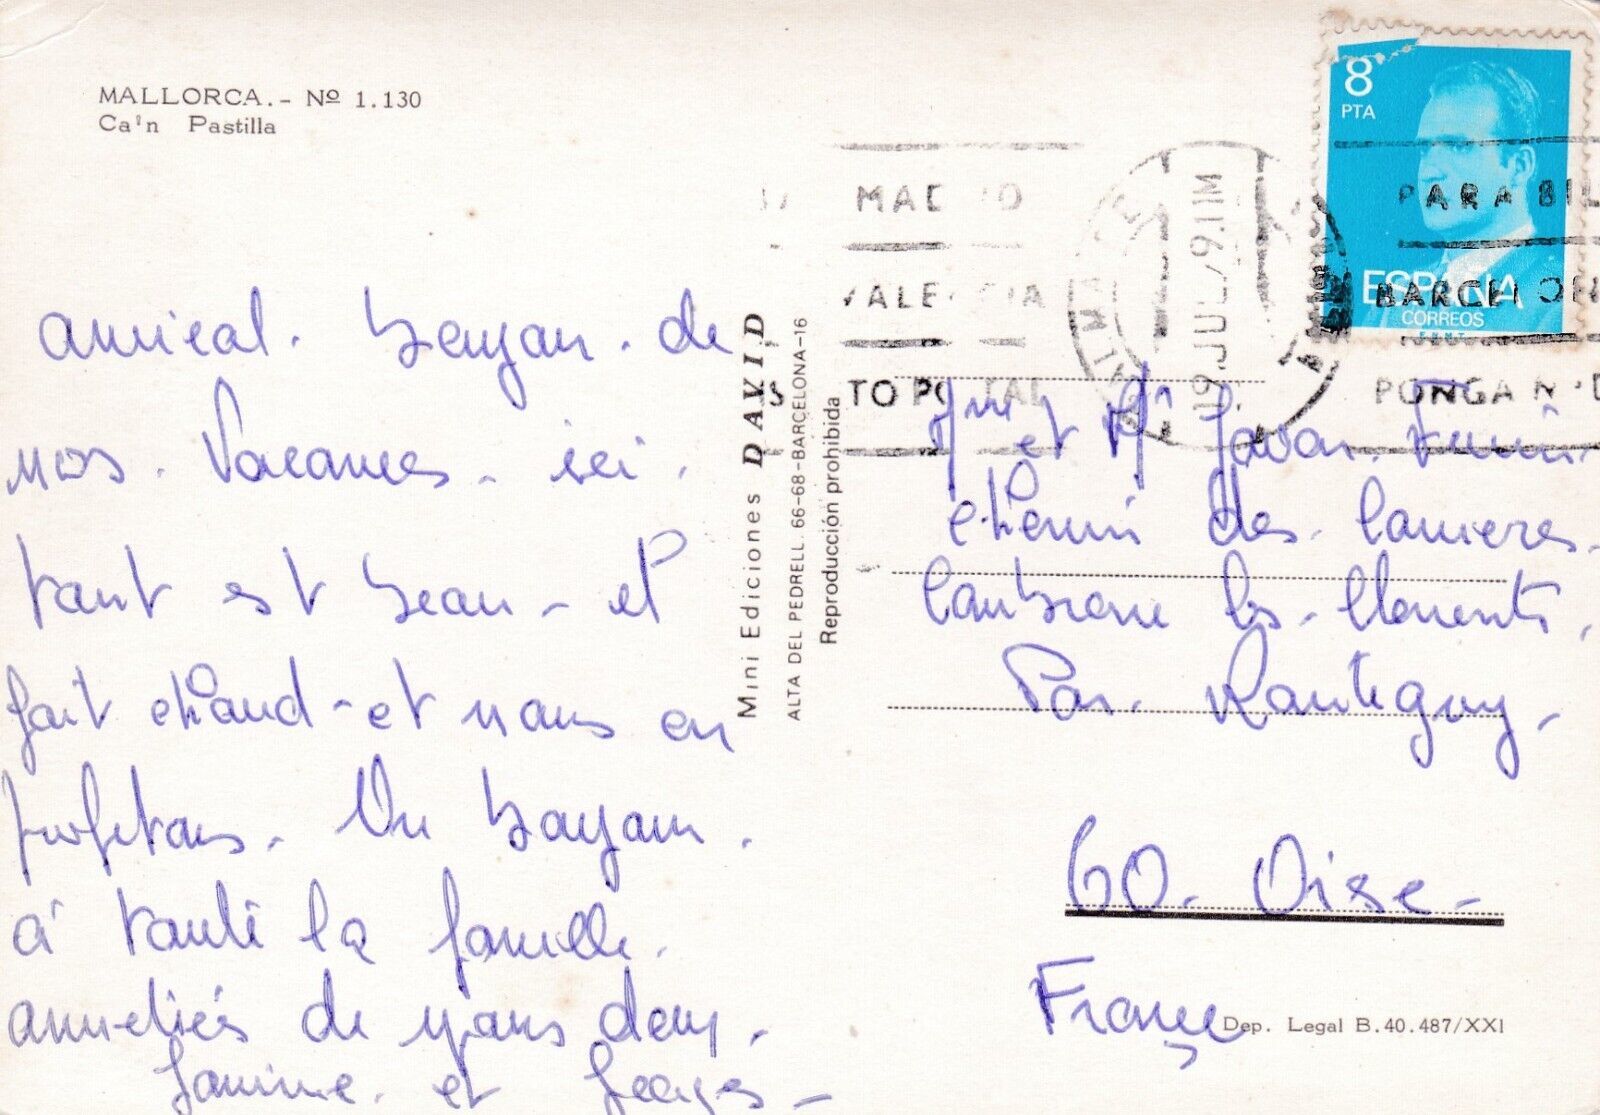 MALLORCA.- Nº 1.130
Ca'n Pastilla
amical. bonjour. de
nos. Vacances. ici.
tout est beau - et
fait chaud - et nous en
profitons. Un bonjour.
à toute la famille.
amitiés de nous deux.
Janine. et Georges -
Mini Ediciones DAVID
ALTA DEL PEDRELL. 66-68-BARCELONA-16
Reproducción prohibida
MADRID
VALENCIA
POSTAL
19 JUL 79 11M
PARA BIL
BARCELON
PONGA N
8
PTA
ESPAÑA
CORREOS
FNMT
et Mr
Chemin des
les
Par. Rantigny -
60. Oise -
France
Dep. Legal B.40.487/XXI